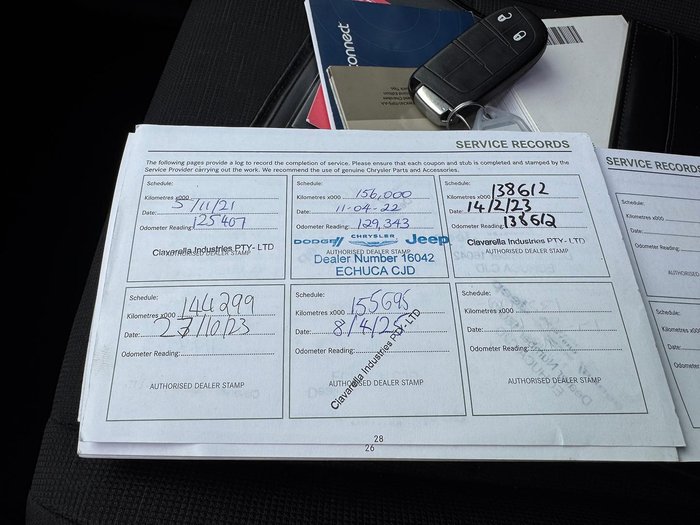 connect
SERVICE RECORDS
The following pages provide a log to record the completion of service. Please ensure that each coupon and stub is completed and stamped by the
Service Provider carrying out the work. We recommend the use of genuine Chrysler Parts and Accessories.
Schedule:
Kilometres x000
Date: 5/11/21
Odometer Reading: 125407
Ciavarella Industries PTY- LTD
AUTHORISED DEALER STAMP
Schedule:
Kilometres x000 156,000
Date: 11-04-22
Odometer Reading: 129,343
AUTHORISED DEALER STAMP
DODGE// CHRYSLER Jeep
Dealer Number 16042
ECHUCA CJD
Schedule:
Kilometres x000 138612
Date: 14/2/23
Odometer Reading: 138612
Ciavarella Industries PTY- LTD
AUTHORISED DEALER STAMP
Schedule:
Kilometres x000 144299
Date: 27/10/23
Odometer Reading:
AUTHORISED DEALER STAMP
Schedule:
Kilometres x000 155695
Date: 8/4/25
Odometer Reading:
Ciavarella Industries PTY- LTD
AUTHORISED DEALER STAMP
Schedule:
Kilometres x000
Date:
Odometer Reading:
AUTHORISED DEALER STAMP
28
26
SERVICE RECORDS
Schedule:
Kilometres x000
Date:
Odometer Reading:
AUTHORISED
Schedule:
Kilometres x000
Date:
Odometer Reading:
AUTHORISED